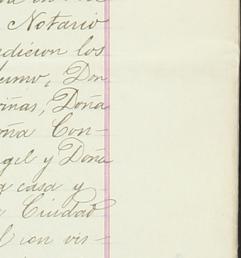 Notario
dicion los
Don
iñas, Doña
oña Con-
gel y Doña
a casa y
Ciudad
l con vis-